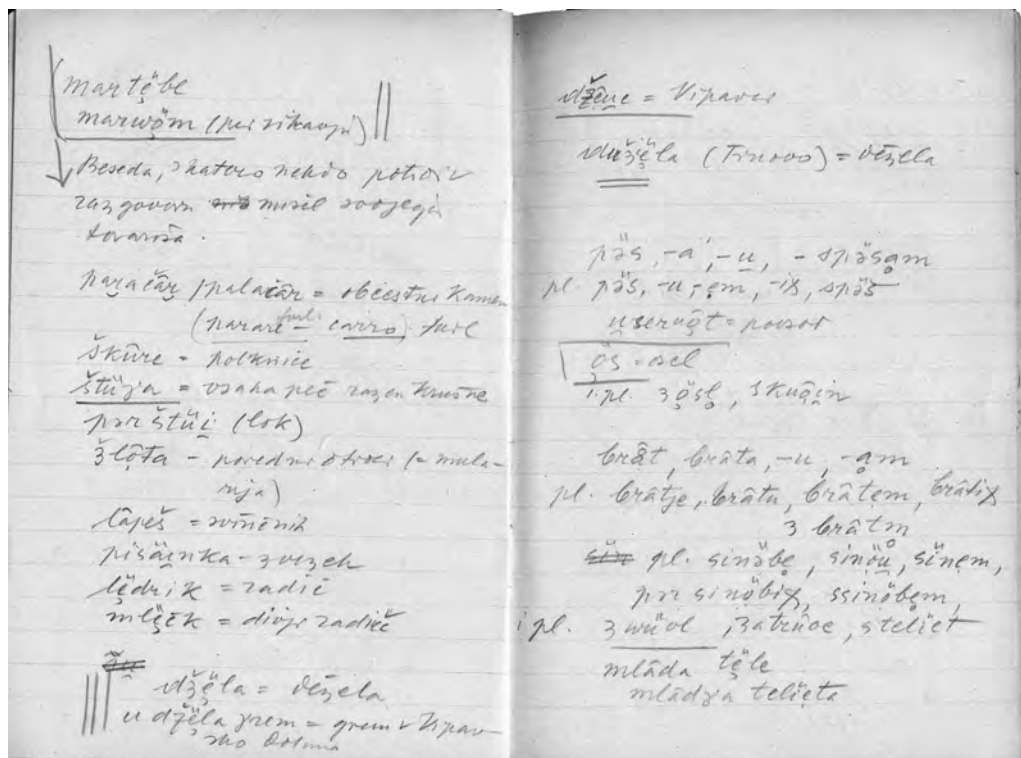 martẹ̈be
marwọ̈m (per zikanji)
Beseda, s katero nekdo potrdi v
razgovoru misel svojega
tovariša.
pa̯račâr̯ / palačâr = obcestni kamen
(parare furl. – carro) furl
škûre = polknice
štü̂ja = vsaka peč razen krušne
pər štüi̯ (lok)
žlọ̑ta – poredni otroci (= mula-
rija)
lâpeš = svinčnik
pisäi̯nka – zvezek
lẹ̈drik = radič
mlẹ̈čk = divji radič
džẹ̈la = dežela
u džẹ̈la grem = grem v Vipav-
sko dolino
džê̯ne = Vipavci
dužẹ̈la (Trnovo) = dežela
pə̏s, -a, -u̯, - spə̏sạm
pl. pə̏s, -u, -ẹm, -iχ, spə̏s
u̯serụȍt = povsod
ọ̈s = osel
i.pl. z ọ̈sḷ, s kuọi̯n
brät, brâta, -u, -ạm
pl. brâtje, brâtu, brâtẹm, brâtiχ
z brâtm̥
pl. sinöbe, sinöu̯, sïnẹm,
pər sinọ̈biχ, ssinọ̈bẹm,
i pl. z wüol, z atrüoc, s teliẹt
mlâda tẹ̈le
mlâdγa teliẹta